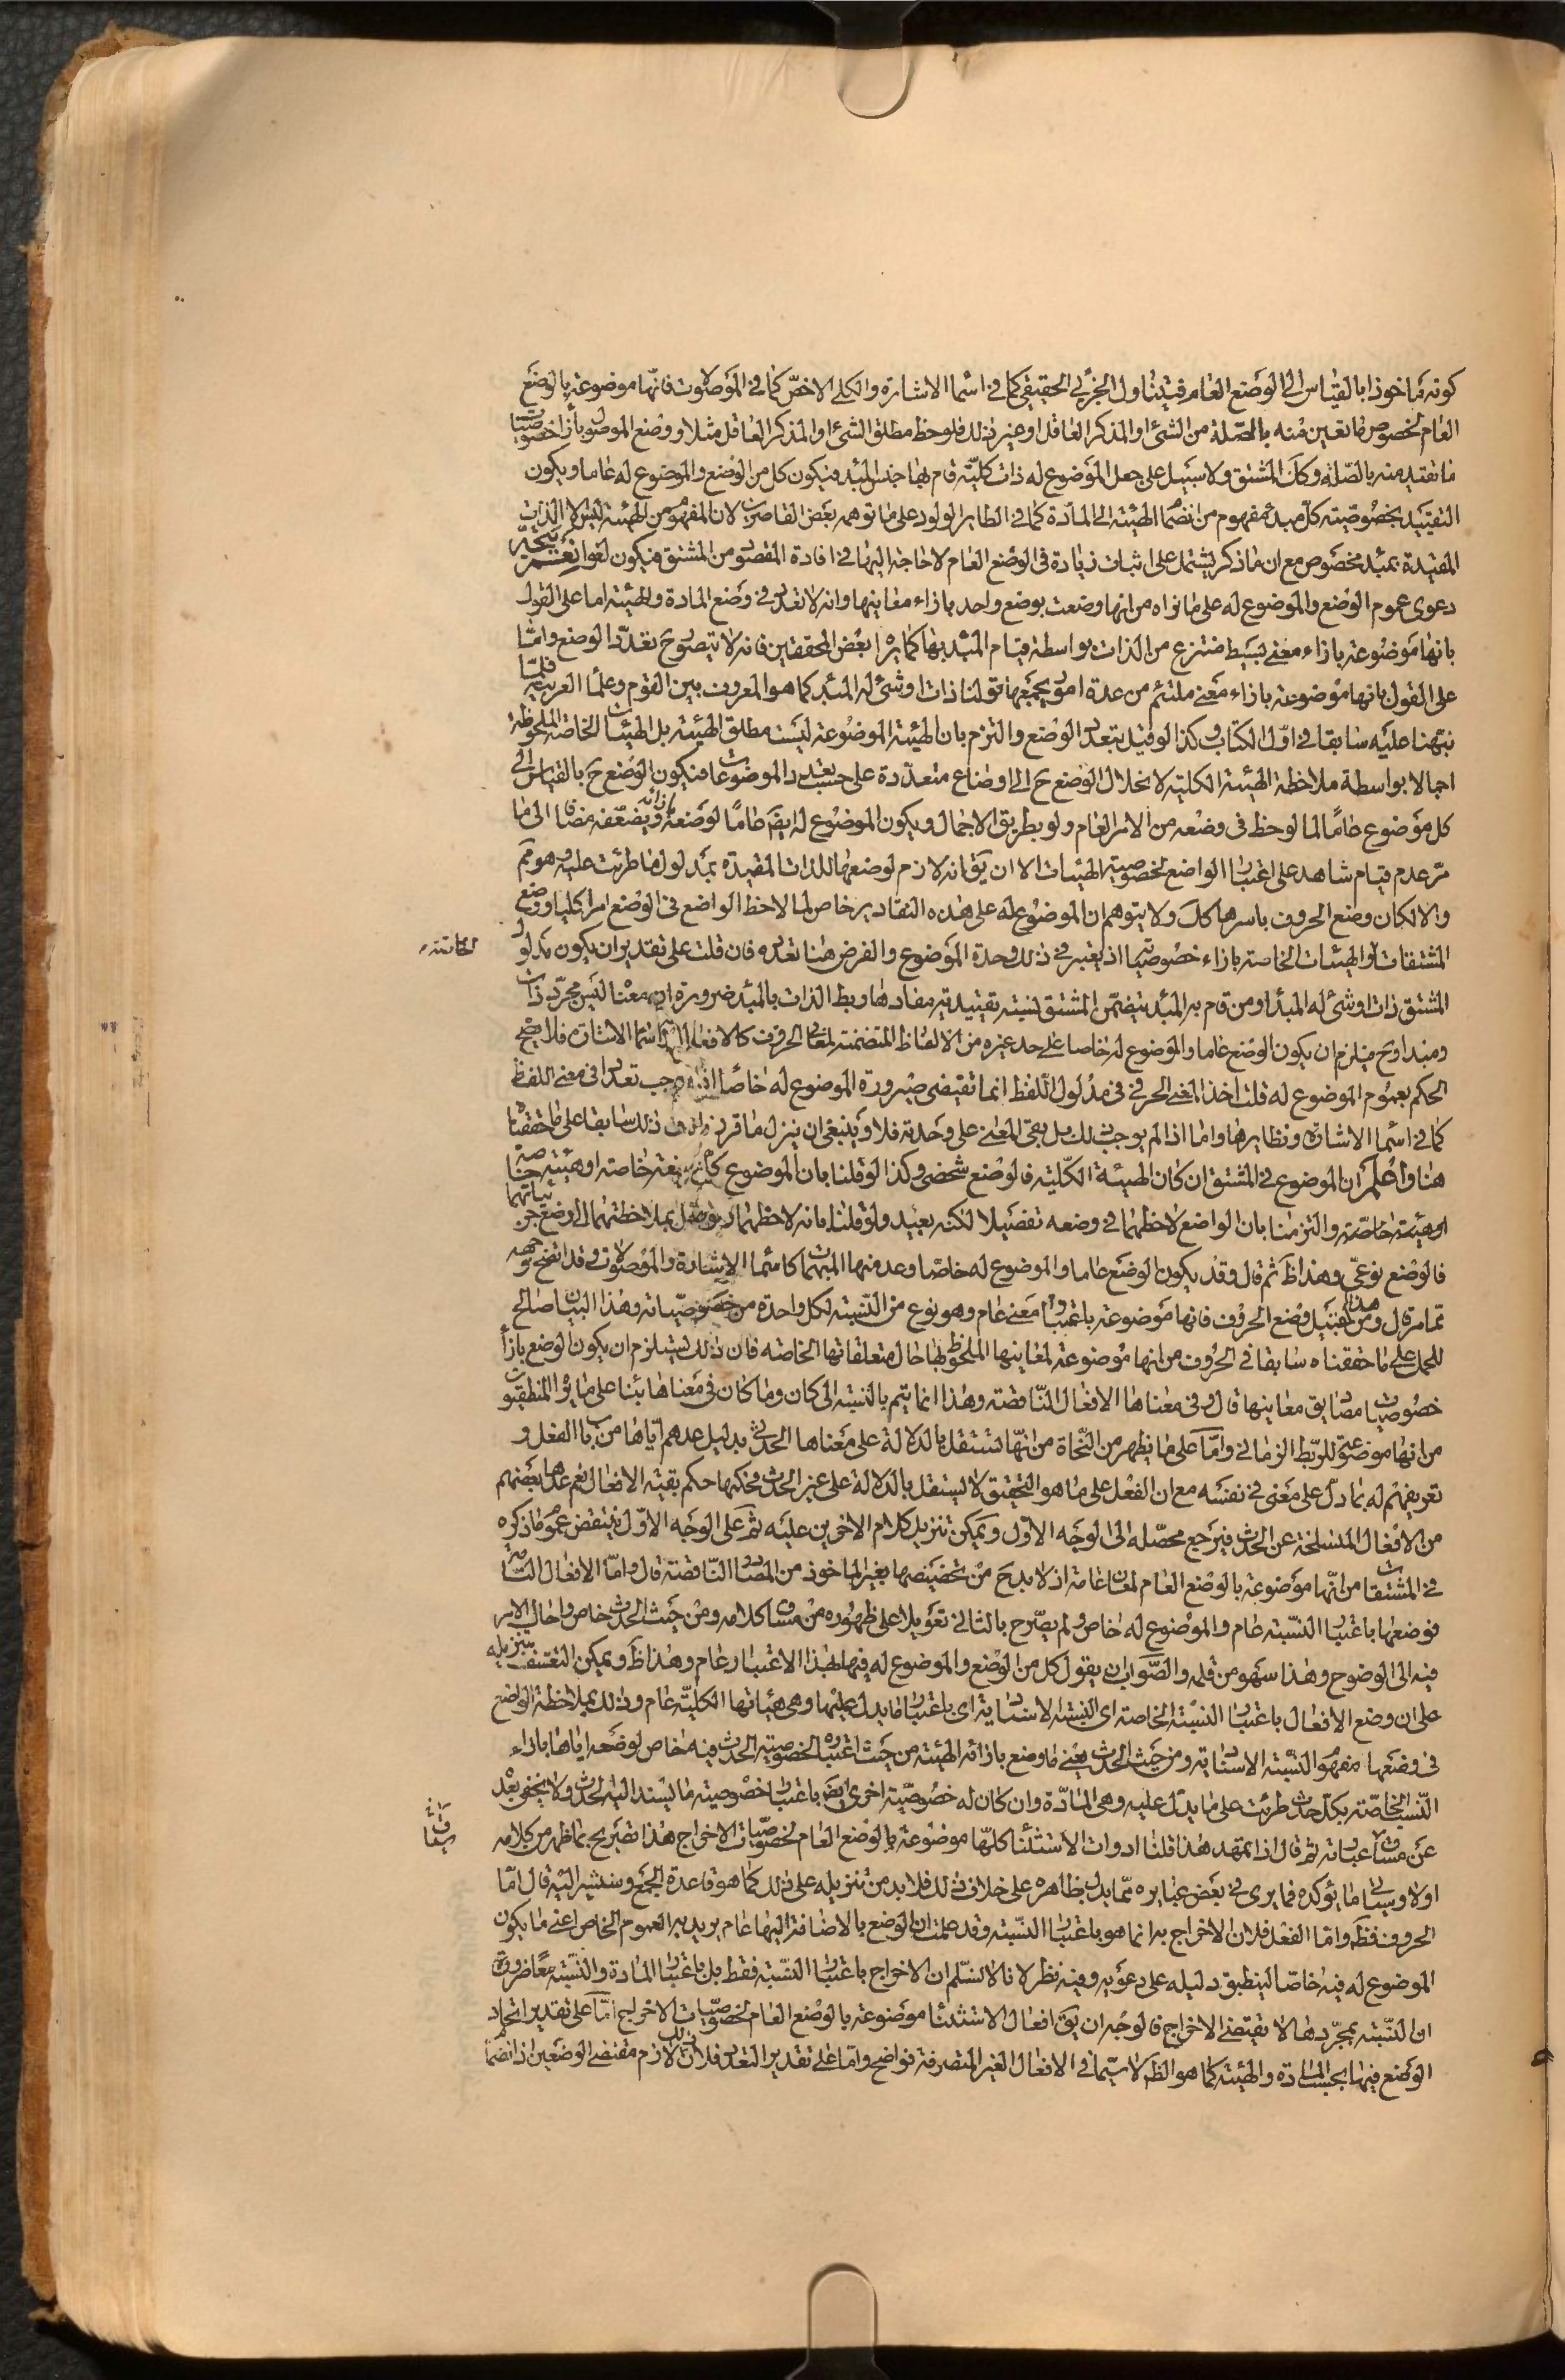 كونه مأخوذا بالقياس الى الوضع العام فيتناول الجزئى الحقيقى كما فى اسماء الاشارة والكلى الاخص كما فى الموصولات فانها موضوعة بالوضع
العام لخصوص ما تعين منه بالصلة من الشئ او المذكر العاقل او غير ذلك فلوحظ مطلق الشئ او المذكر العاقل مثلا و وضع الموصول بأزاء خصوصيات
ما تقيد منه بالصلة وكك المشتق ولا سبيل على جعل الموضوع له ذات كلية قام بها جنس المبدء فيكون كل من الوضع والموضوع له عاما ويكون
التقييد بخصوصية كل مبدء مفهوم من انضمام الهيئة الى المادة كما فى الطاير الولود على ما توهمه بعض القاصرين لان المفهوم من الهيئة ليس الا الذات
المقيدة بمبدء مخصوص مع ان ما ذكر يشتمل على اثبات زيادة فى الوضع العام لا حاجة اليها فى افادة المقصود من المشتق فيكون لغوا نعم يتجه
دعوى عموم الوضع والموضوع له على ما نراه من انها وضعت بوضع واحد بازاء معانيها وانه لا تعدد فى وضع المادة والهيئة اما على القول
بانها موضوعة بازاء معنى بسيط منتزع من الذات بواسطة قيام المبدء بها كما يراه بعض المحققين فانه لا يتصور ح تعدد الوضع واما
على القول بانها موضوعة بازاء معنى ملتئم من عدة امور يجمعها قولنا ذات او شئ له المبدء كما هو المعروف بين القوم وعلماء العربية فلما
نبهنا عليه سابقا فى اول الكتاب وكذا لو قيل بتعدد الوضع والتزم بان الهيئة الموضوعة ليست مطلق الهيئة بل الهيئات الخاصة الملحوظة
اجمالا بواسطة ملاحظة الهيئة الكلية لانحلال الوضع ح الى اوضاع متعددة على حسب تعدد الموضوعات فيكون الوضع ح بالقياس الى
كل موضوع عاما لما لوحظ فى وضعه من الامر العام ولو بطريق الاجمال ويكون الموضوع له ايضا عاما لوضعه بازائه ويضعفه مضافا الى ما
مر عدم قيام شاهد على اعتبار الواضع لخصوصية الهيئات الا ان يق انه لازم لوضعها للذات المقيدة بمدلول ما طرئت عليه وهو مم
والا لكان وضع الحروف باسرها كك ولا يتوهم ان الموضوع له على هذه التقادير خاص لما لاحظ الواضع فى الوضع امرا كليا ووضع
المشتقات والهيئات الخاصة بازاء خصوصياته اذ يعتبر فى ذلك وحدة الموضوع والفرض هنا تعدده فان قلت على تقدير ان يكون مدلول
المشتق ذات او شئ له المبدء او من قام به المبدء يتضمن المشتق نسبة تقييدية مفادها ربط الذات بالمبدء ضرورة ان معناه ليس مجرد ذات
ومبدء وح فيلزم ان يكون الوضع عاما والموضوع له خاصا على حد غيره من الالفاظ المتضمنة لمعانى الحروف كالافعال واسماء الاشارة فلا يصح
الحكم بعموم الموضوع له قلت اخذ المعنى الحرفى فى مدلول اللفظ انما تقتضى صيرورة الموضوع له خاصا اذا اوجب تعددا فى معنى اللفظ
كما فى اسماء الاشارة ونظايرها واما اذا لم يوجب ذلك بل بقى المعنى على وحدته فلا وينبغى ان ينزل ما قررناه فى ذلك سابقا على ما حققناه
هنا واعلم ان الموضوع فى المشتق ان كان الهيئة الكلية فالوضع شخصى وكذا لو قلنا بان الموضوع كل صيغة خاصة او هيئة خاصة
او هيئة خاصة والتزمنا بان الواضع لاحظها فى وضعه تفصيلا لكنه بعيد ولو قلنا بانه لاحظها بملاحظتهما الى وضع جزئياتهما
فالوضع نوعى وهذا ظ ثم قال وقد يكون الوضع عاما والموضوع له خاصا وعد منها المبهمات كاسماء الاشارة والموصولات وقد اتضح وجهه
مما مر قال ومن هذا القبيل وضع الحروف فانها موضوعة باعتبار معنى عام وهو نوع من النسبة لكل واحدة من خصوصياته وهذا البيان صالح
للحمل على ما حققناه سابقا فى الحروف من انها موضوعة لمعانيها الملحوظ بها حال متعلقاتها الخاصة فان ذلك يستلزم ان يكون الوضع بازاء
خصوصيات مصاديق معانيها قال وفى معناها الافعال الناقصة وهذا انما يتم بالنسبة الى كان وما كان فى معناها بناء على ما يراه المنطقيون
من انها موضوعة للربط الزمانى واما على ما يظهر من النحاة من انها تستقل بالدلالة على معناها الحدثى بدليل عدهم اياها من باب الفعل و
تعريفهم له بما دل على معنى فى نفسه مع ان الفعل على ما هو التحقيق لا يستقل بالدلالة على غير الحدث فحكمها حكم بقية الافعال نعم عدها بعضهم
من الافعال المنسلخة عن الحدث فيرجع محصله الى الوجه الاول ويمكن تنزيل كلام الاخرين عليه ثم على الوجه الاول ينتقض عموم ما ذكره
فى المشتقات من انها موضوعة بالوضع العام لمعان عامة اذ لا بد ح من تخصيصها بغير الماخوذ من المصادر الناقصة قال واما الافعال التامة
فوضعها باعتبار النسبة عام والموضوع له خاص ولم يصرح بالثانى تعويلا على ظهوره من مساق كلامه ومن حيث الحدث خاص واحال الامر
فيه الى الوضوح وهذا سهو من قلمه والصواب ان يقول كل من الوضع والموضوع له فيها بهذا الاعتبار عام وهذا ظ ويمكن التعسف بتنزيله
على ان وضع الافعال باعتبار النسبة الخاصة اى النسبة الاسنادية اى باعتبار ما يدل عليها وهى هيئاتها الكلية عام وذلك بملاحظة الواضع
فى وضعها مفهوم النسبة الاسنادية ومن حيث الحدث يعنى ما وضع بازائه الهيئة من حيث اعتباره لخصوصية الحدث فيه خاص لوضعه اياها بازاء
النسب الخاصة بكل حدث طرئت على ما يدل عليه وهى المادة وان كان له خصوصية اخرى ايض باعتبار خصوصية ما يسند اليه الحدث ولا يخفى بعده
عن مساق عباراته ثم قال اذا تمهد هذا قلنا ادوات الاستثناء كلها موضوعة بالوضع العام لخصوصيات الاخراج هذا تصريح بما ظهر من كلامه
اولا وسيأتى ما يؤكده فما يرى فى بعض عبايره مما يدل بظاهره على خلاف ذلك فلا بد من تنزيله على ذلك كما هو قاعدة الجمع وسنشير اليه قال اما
الحروف فظ واما الفعل فلان الاخراج به انما هو باعتبار النسبة وقد علمت ان الوضع بالاضافة اليها عام يريد به العموم الخاص اعنى ما يكون
الموضوع له فيه خاصا لينطبق دليله على دعويه وفيه نظر لانا لا نسلم ان الاخراج باعتبار النسبة فقط بل باعتبار المادة والنسبة معا ضرورة
ان النسبة بمجردها لا يقتضى الاخراج فالوجه ان يق افعال الاستثناء موضوعة بالوضع العام لخصوصيات الاخراج اما على تقدير اتحاد
الوضع فيها بحسب المادة والهيئة كما هو الظ لا سيما فى الافعال الغير المتصرفة فواضح واما على تقدير التعدد فلان ذلك لازم مقتضى الوضعين اذ انضمام